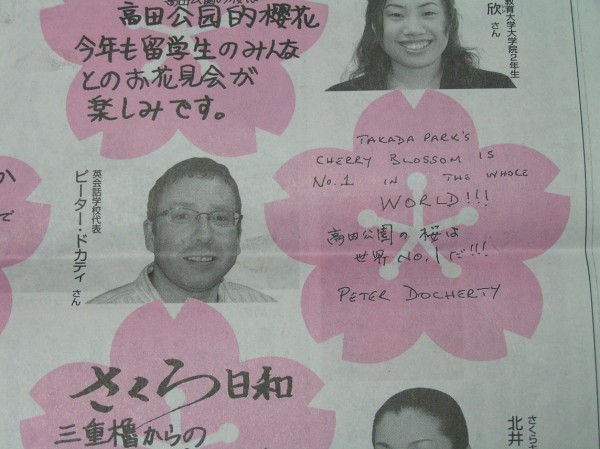 高田公園的櫻花
今年も留学生のみんな
とのお花見会が
楽しみです。
欣さん
教育大学大学院2年生
TAKADA PARK'S
CHERRY BLOSSOM IS
No.1 IN THE WHOLE
WORLD!!!
高田公園の桜は
世界No.1だ!!!
PETER DOCHERTY
英会話学校代表
ピーター・ドカティさん
さくら日和
三重櫓からの
北井